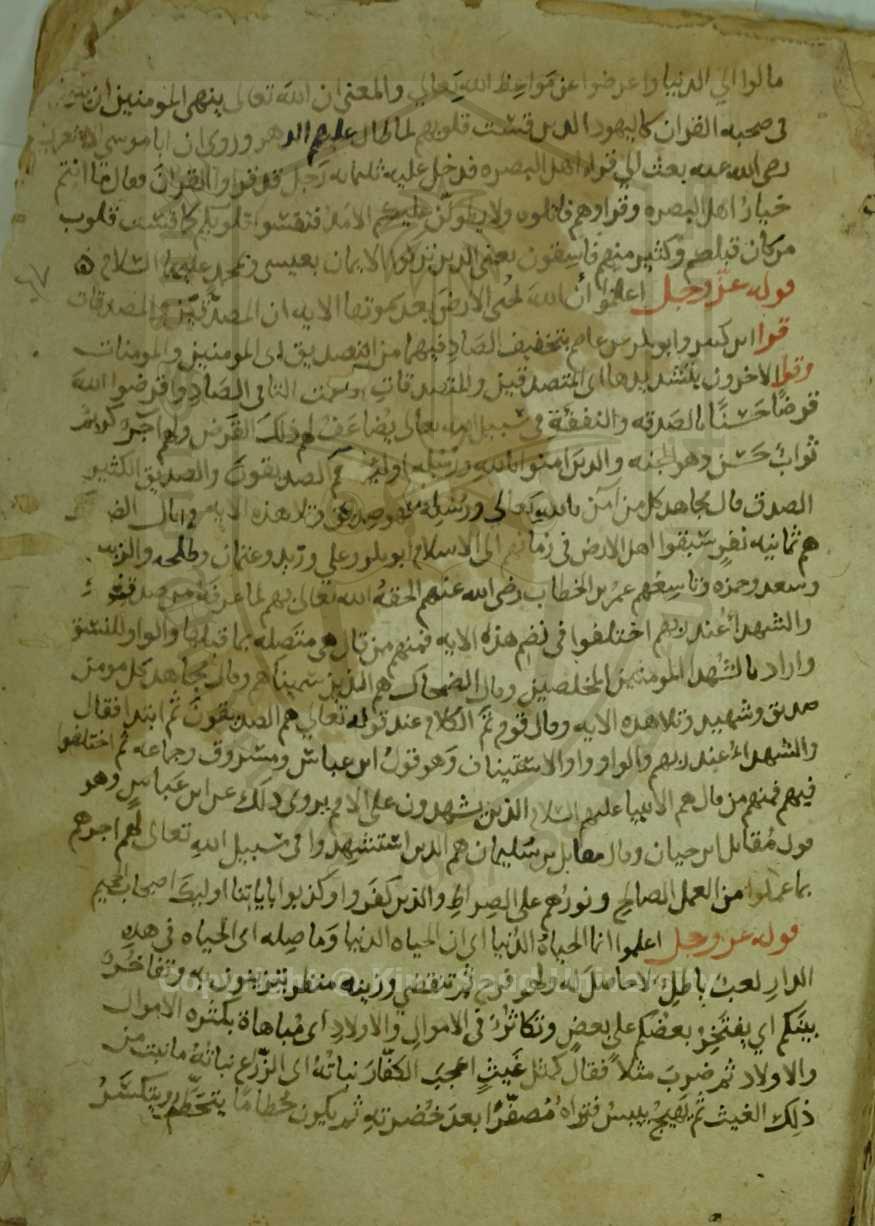 مالوا الي الدنيا واعرضوا عن مواعظ الله تعالي والمعنى ان الله تعالى ينهى المومنين ان يكونوا
فى صحبه القران كاليهود الدين قست قلوبهم لما طال عليهم الدهر وروى ان ابا موسى الاشعرى
رصى الله عنه بعث الي قراء اهل البصره فدخل عليه ثلثمايه رجل قد قروا القران فقال لهم انتم
خيار اهل البصره وقراوهم فاتلوه ولا يطولن عليكم الامد فتقسوا قلوبكم كما قست قلوب
من كان قبلكم وكثير منهم فاسقون يعنى الدين تركوا الايمان بعيسى ومحمد عليهما السلام ه
قوله عز وجل اعلموا أن الله يحى الارض بعد موتها الايه ان المصدقين والمصدقات
قرا ابن كثير وابوبكر عن عاصم بتخفيف الصاد فيهما من التصديق اى المومنين والمومنات
وقرا الاخرون بتشديدها اى المتصدقين والمتصدقات ادغمت التا فى الصاد واقرضوا الله
قرضا حسنا بالصدقه والنفقة فى سبيل الله تعالى يضاعف لهم ذلك القرض ولهم اجر كريم
ثواب حسن وهو الجنه والدين امنوا بالله ورسله اوليك هم الصديقون والصديق الكثير
الصدق قال مجاهد كل من آمن بالله تعالى ورسله فهو صديق وتلا هذه الايه وقال الضحاك
هم ثمانيه نفر سبقوا اهل الارض فى زمانهم الى الاسلام ابوبكر وعلي وزيد وعثمان وطلحه والزبير
وسعد وحمزه وتاسعهم عمر بن الخطاب رضى الله عنهم الحقه الله تعالى بهم لما عرف من صدق نيته
والشهدا عند ربهم اختلفوا فى نظم هذه الايه فمنهم من قال هى متصله بما قبلها والواو للنسق
واراد بالشهدا المومنين المخلصين وقال الضحاك هم الذين سميناهم وقال مجاهد كل مومن
صديق وشهيد وتلا هده الايه وقال قوم تم الكلام عند قوله تعالي هم الصديقون ثم ابتدا فقال
والشهداء عند ربهم والواو واو الاستيناف وهو قول ابن عباس ومسروق وجماعه ثم اختلفوا
فيهم فمنهم من قال هم الانبيا عليهم السلام الذين يشهدون على الامم يروى ذلك عن ابن عباس وهو
قول مقاتل ابن حيان وقال مقاتل بن سليمان هم الدين استشهدوا فى سبيل الله تعالى لهم اجرهم
بما عملوا من العمل الصالح ونورهم على الصراط والذين كفروا وكذبوا باياتنا اوليك اصحاب الجحيم
قوله عز وجل اعلموا انما الحياة الدنيا اى ان الحياه الدنيا وما صله اى الحياه فى هذه
الدار لعب باطل لا حاصل له ولهو فرح ثم تنقضي وزينه منظر يتزينون به وتفاخر
بينكم اي يفتخر بعضكم على بعض وتكاثر فى الاموال والاولاد اى مباهاة بكثره الاموال
والاولاد ثم ضرب مثلا فقال كمثل غيث اعجب الكفار نباته اى الزراع نباته ما نبت من
ذلك الغيث ثم يهيج ييبس فتراه مصفرا بعد خضرته ثم يكون حطاما يتحطم ويتكسر